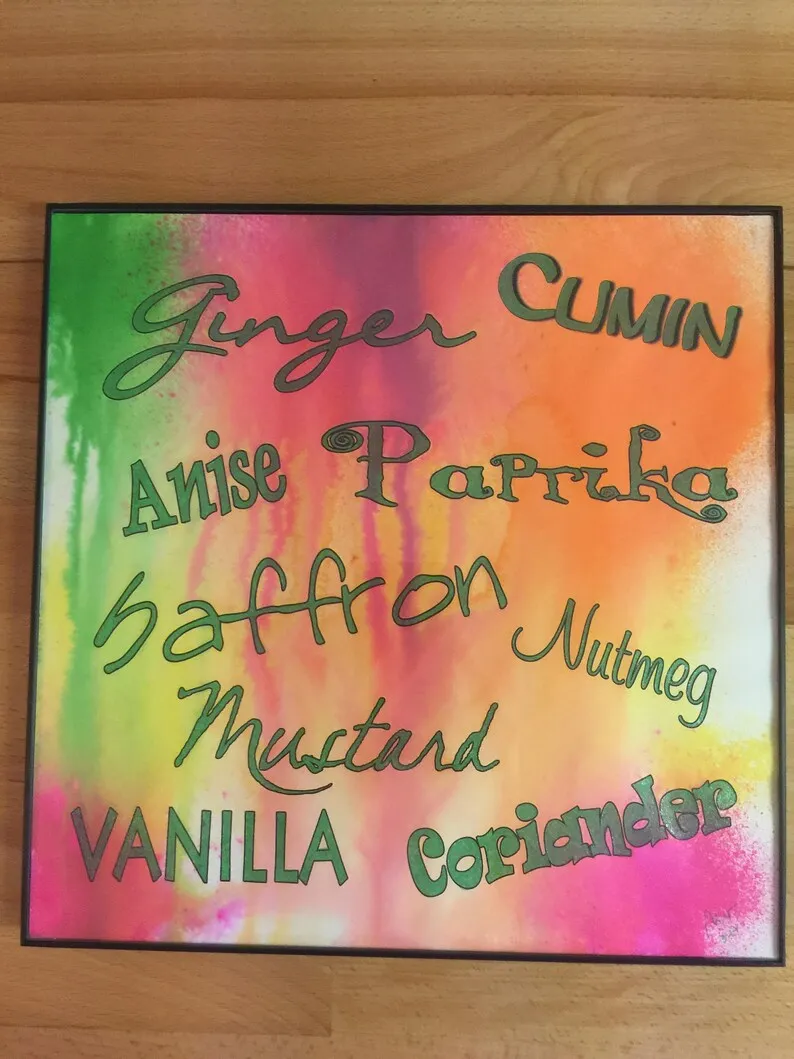 Ginger CUMIN
Anise Paprika
Saffron
Nutmeg
Mustard
VANILLA Coriander